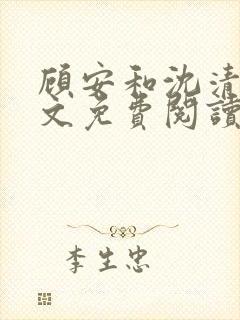 顾安和沈清
文免费閱讀
李生忠